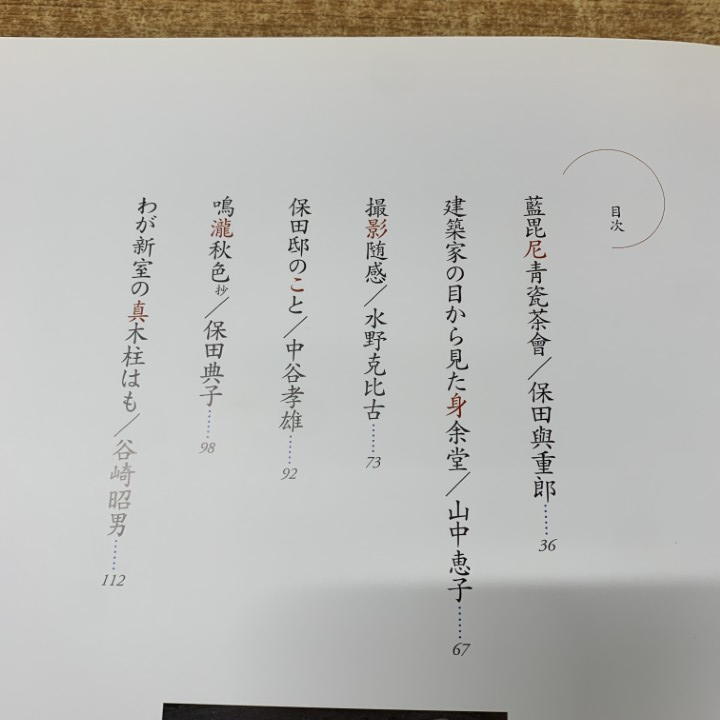 目次
藍毘尼青瓷茶會／保田與重郎……36
建築家の目から見た身余堂／山中恵子……67
撮影随感／水野克比古……73
保田邸のこと／中谷孝雄……92
鳴瀧秋色抄／保田典子……98
わが新室の真木柱はも／谷崎昭男……112